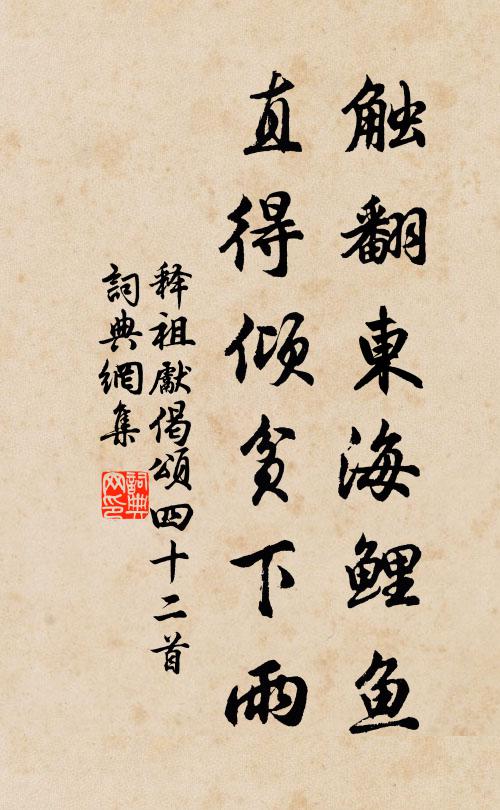 触翻東海鲤鱼
直得倾盆下雨
释祖獻偈頌四十二首
詞典網集
詞典网印